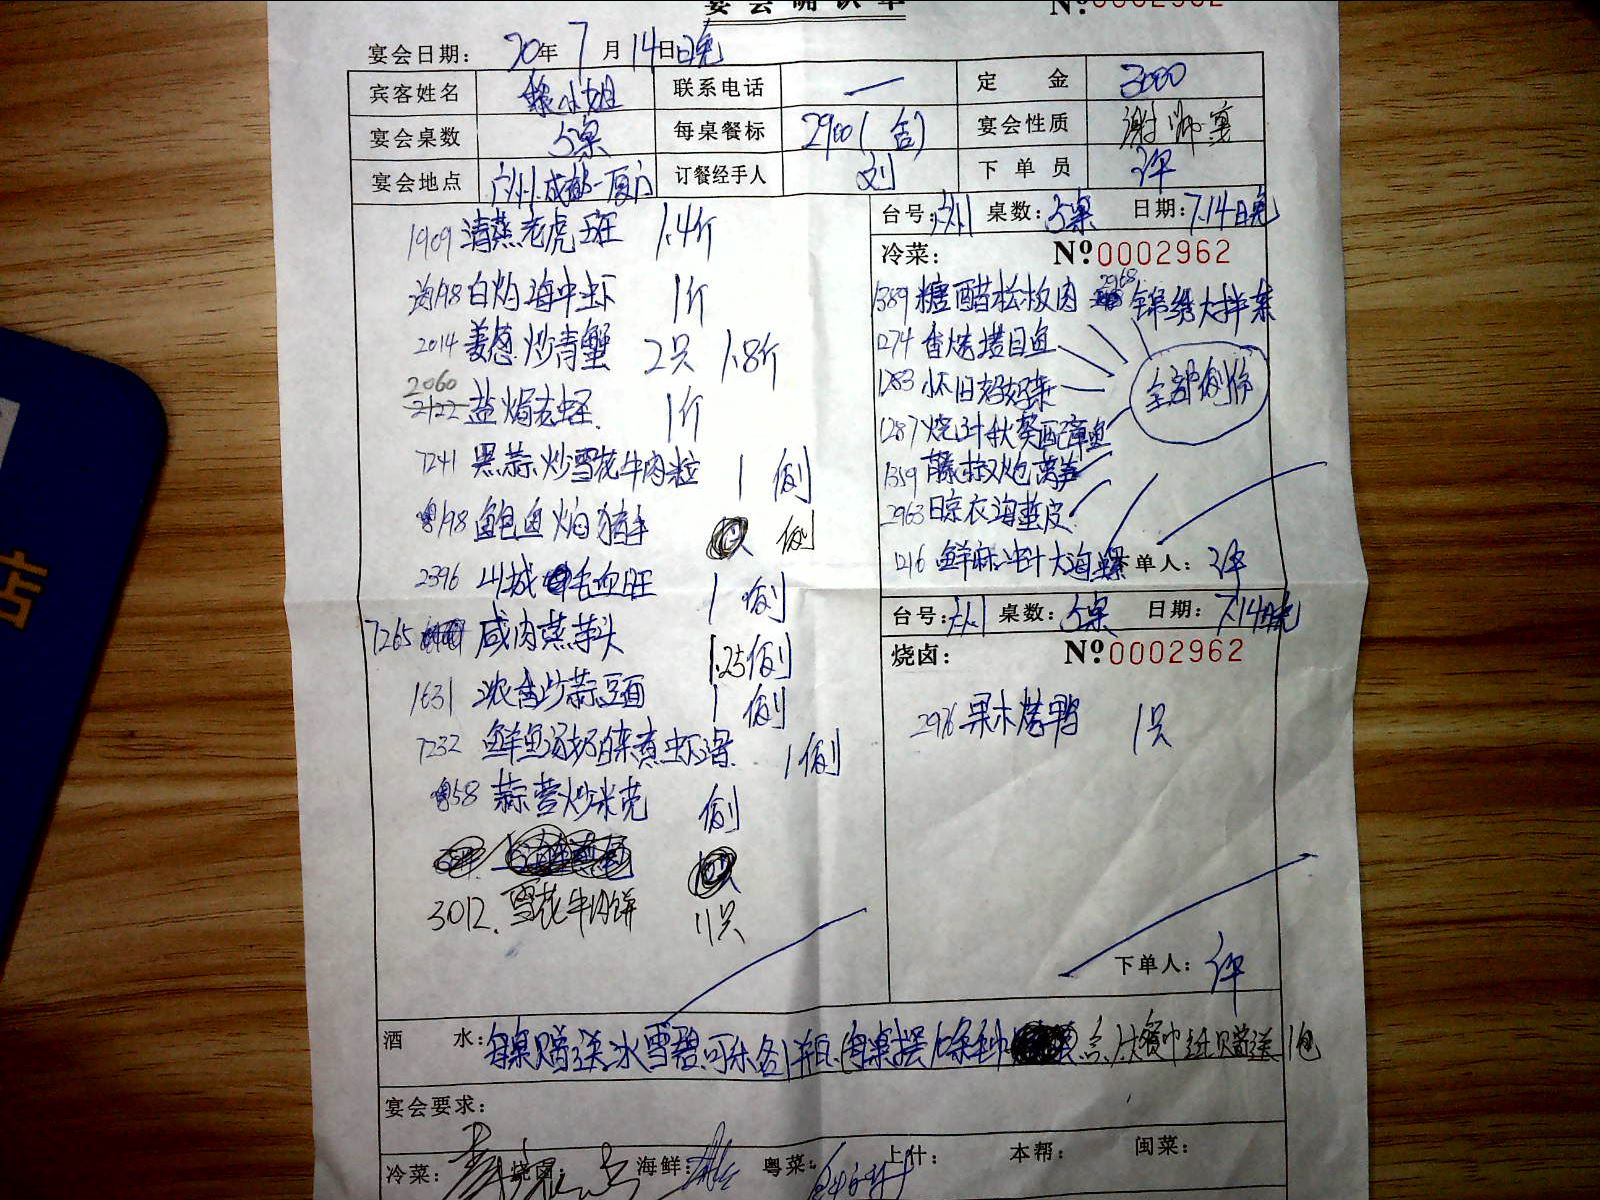 宴会确认单 Nº0002962
宴会日期: 20年 7月 14日晚
宾客姓名 小姐 联系电话 — 定 金 3000
宴会桌数 5桌 每桌餐标 2900(含) 宴会性质 谢师宴
宴会地点 广州.成都-厦门 订餐经手人 刘 下单员 许
台号: 桌数:5桌 日期:7.14日晚
1909 清蒸老虎斑 1.4斤
海198 白灼海中虾 1斤
2014 姜葱炒青蟹 2只 1.8斤
2060 盐焗 1斤
7241 黑蒜炒雪花牛肉粒 1例
粤198 鲍鱼焖猪手 例
2396 山城毛血旺 1例
7265 咸肉蒸芋头 1.25例
1631 浓香炒蒜豆面 1例
7232 鲜鱼汤奶白菜煮虾滑 1例
粤58 蒜蓉炒米苋 例
3012. 雪花牛肉饼 11只
冷菜: Nº0002962
1389 糖醋松板肉 2968 锦绣大拌菜
1274 香烤塔目鱼
1283 怀旧妈妈菜
全部例份
1287 烧汁秋葵配章鱼
1359 藤椒双炮莴笋
2963 晾衣海蜇皮
1216 鲜麻汁大海螺 单人: 许
台号: 桌数:5桌 日期:7.14日晚
烧卤: Nº0002962
2976 果木烤鸭 1只
下单人: 许
酒 水: 每桌赠送冰雪碧.可乐各1瓶.每桌摆 餐巾纸赠送1包
宴会要求:
冷菜: 烧卤: 海鲜: 粤菜: 上什: 本帮: 闽菜:
店